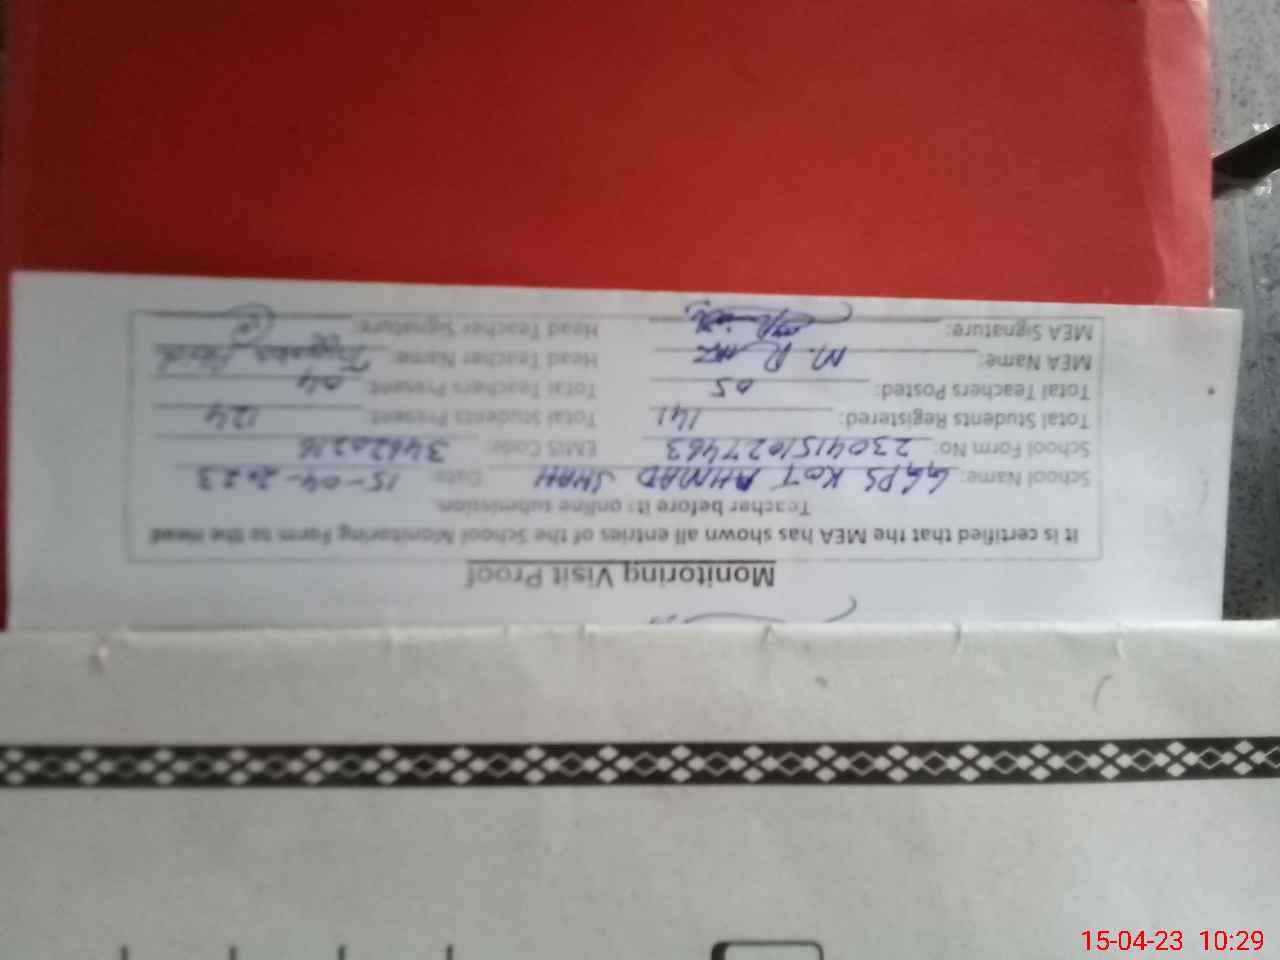 Monitoring Visit Proof
It is certified that the MEA has shown all entries of the School Monitoring Form to the Head
Teacher before its online submission.
School Name: GGPS KOT AHMAD SHAH Date: 15-04-2023
School Form No: 2304151027463 EMIS Code: 34620216
Total Students Registered: 141 Total Students Present: 124
Total Teachers Posted: 05 Total Teachers Present: 04
MEA Name: M. Head Teacher Name:
MEA Signature: Head Teacher Signature:
15-04-23 10:29